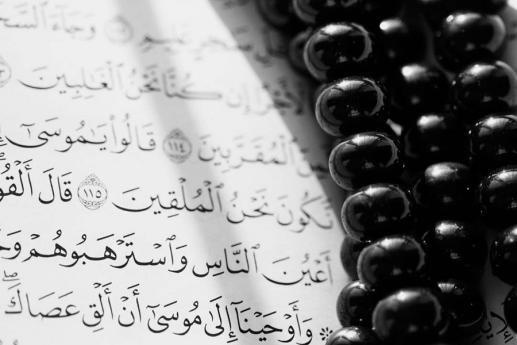 وَجَآءَ ٱلسَّحَ
سَٰحِرٍ عَلِيمٍ
لَأَجْرًا إِن كُنَّا نَحْنُ ٱلْغَٰلِبِينَ
لَمِنَ ٱلْمُقَرَّبِينَ ١١٤ قَالُوا۟ يَٰمُوسَىٰٓ
نَّكُونَ نَحْنُ ٱلْمُلْقِينَ ١١٥ قَالَ أَلْقُو
أَعْيُنَ ٱلنَّاسِ وَٱسْتَرْهَبُوهُمْ وَجَ
۞ وَأَوْحَيْنَآ إِلَىٰ مُوسَىٰٓ أَنْ أَلْقِ عَصَاكَ ۖ